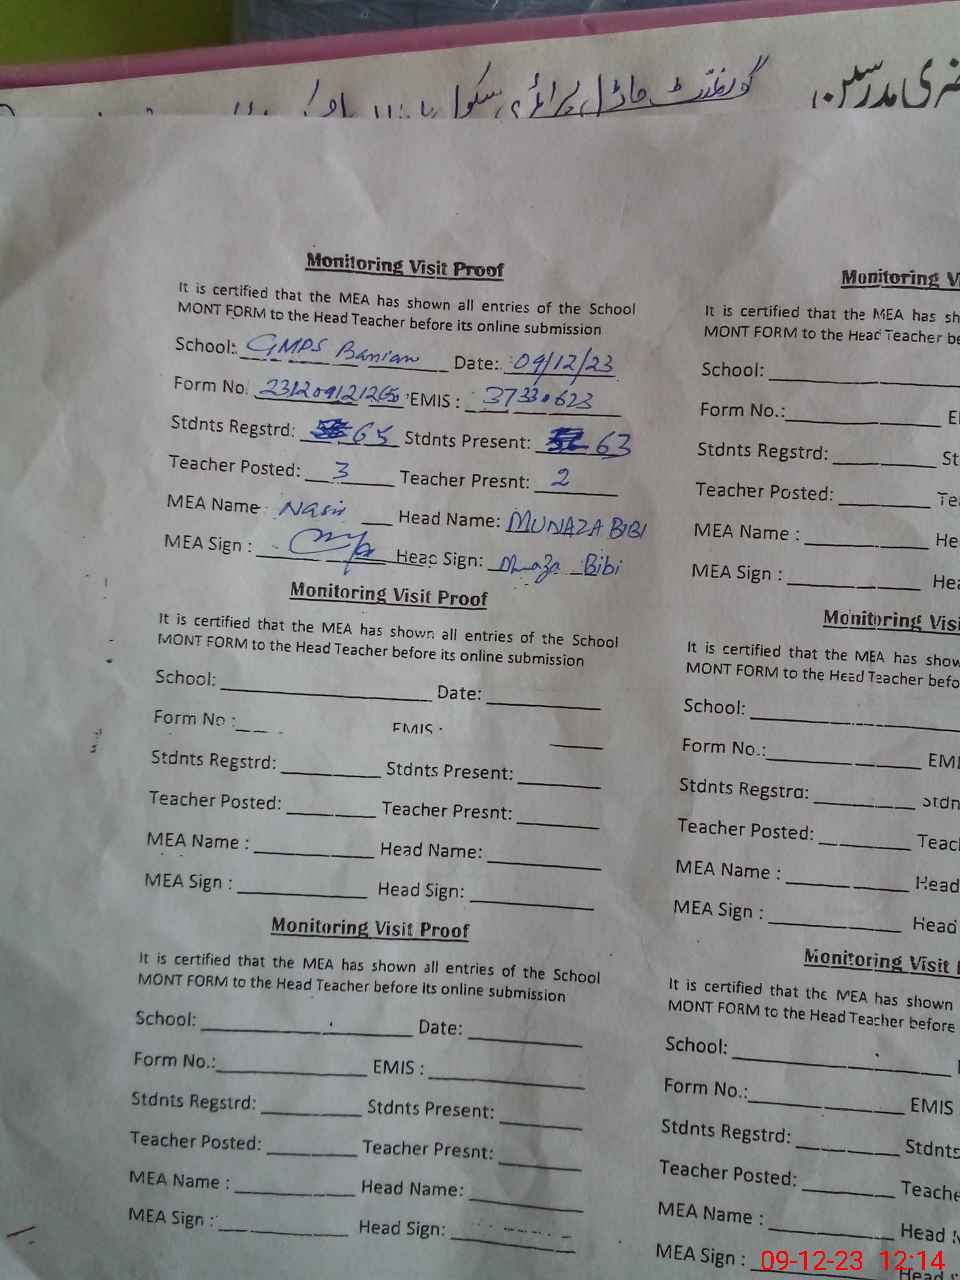 ضری مدرسین
گورنمنٹ ماڈل پرائمری سکول
Monitoring Visit Proof
It is certified that the MEA has shown all entries of the School
MONT FORM to the Head Teacher before its online submission
School: GMPS Banian Date: 09/12/23
Form No. EMIS : 37330623
Stdnts Regstrd: 65 Stdnts Present: 63
Teacher Posted: 3 Teacher Presnt: 2
MEA Name Nasir Head Name: MUNAZA BIBI
MEA Sign : Head Sign: Munaza Bibi
Monitoring Visit Proof
It is certified that the MEA has shown all entries of the School
MONT FORM to the Head Teacher before its online submission
School: Date:
Form No : EMIS :
Stdnts Regstrd: Stdnts Present:
Teacher Posted: Teacher Presnt:
MEA Name : Head Name:
MEA Sign : Head Sign:
Monitoring Visit Proof
It is certified that the MEA has shown all entries of the School
MONT FORM to the Head Teacher before its online submission
School: Date:
Form No.: EMIS :
Stdnts Regstrd: Stdnts Present:
Teacher Posted: Teacher Presnt:
MEA Name : Head Name:
MEA Sign : Head Sign:
Monitoring Vi
It is certified that the MEA has sh
MONT FORM to the Head Teacher be
School:
Form No.: E
Stdnts Regstrd: St
Teacher Posted: Te
MEA Name : He
MEA Sign : Hea
Monitoring Visi
It is certified that the MEA has show
MONT FORM to the Head Teacher befo
School:
Form No.: EMI
Stdnts Regstrd: Stdn
Teacher Posted: Teac
MEA Name : Head
MEA Sign : Head
Monitoring Visit
It is certified that the MEA has shown
MONT FORM to the Head Teacher before
School:
Form No.: EMIS
Stdnts Regstrd: Stdnts
Teacher Posted: Teache
MEA Name : Head N
MEA Sign : Head
09-12-23 12:14